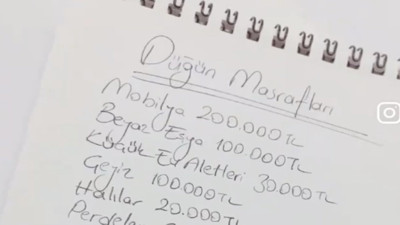 Düğün Masrafları
Mobilya 200.000TL
Beyaz Eşya 100.000TL
Küçük Ev Aletleri 30.000TL
Çeyiz 100.000TL
Halılar 20.000TL